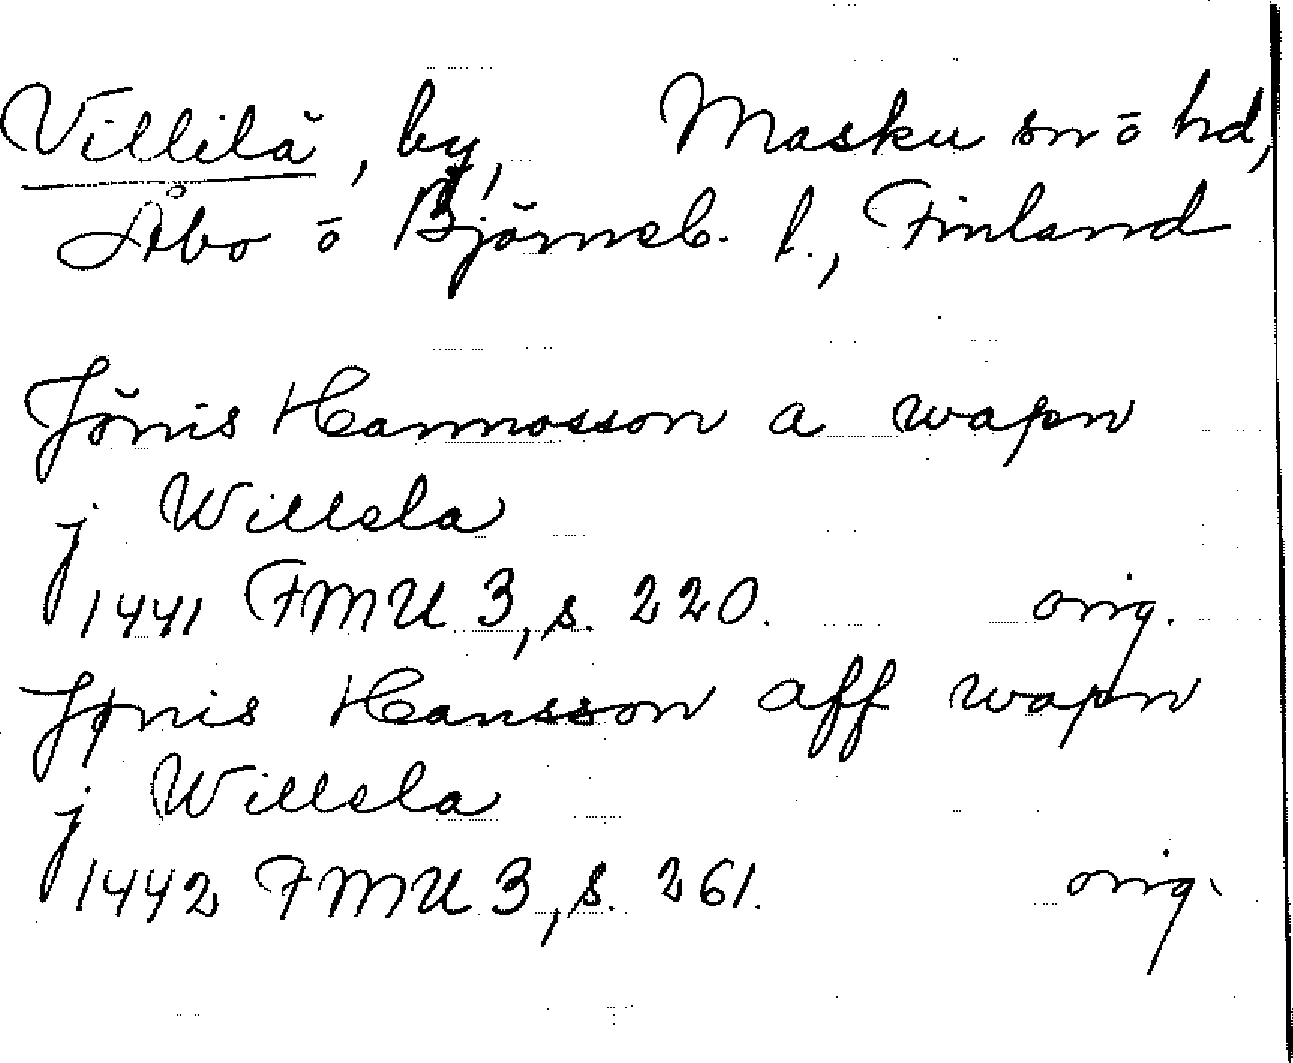 Villilä, by, Masku sn o hd,
Åbo o Björneb. l., Finland
Jönis Hannosson a wapn
j Willela
1441 FMU 3, s. 220. orig.
Jønis Hansson aff wapn
j Willela
1442 FMU 3, s. 261. orig.